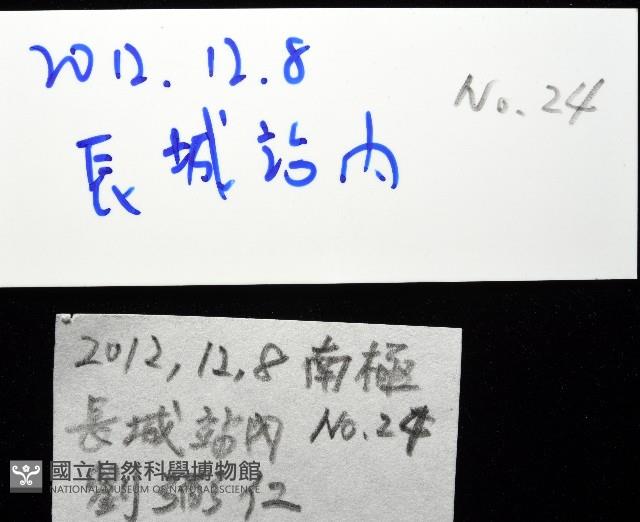 2012.12.8
No.24
長城站內
2012,12,8 南極
長城站內 No.24
國立自然科學博物館
NATIONAL MUSEUM OF NATURAL SCIENCE